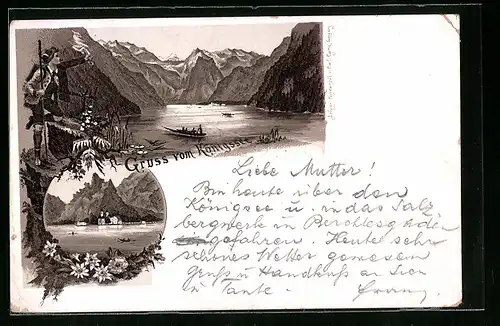 Gruss vom Königssee
Liebe Mutter!
Bin heute über den
Königsee u. in das Salz
bergwerk in Berchtesgaden
gefahren. Heute sehr
schönes Wetter gewesen
Gruß u Handkuß an
u Tante.